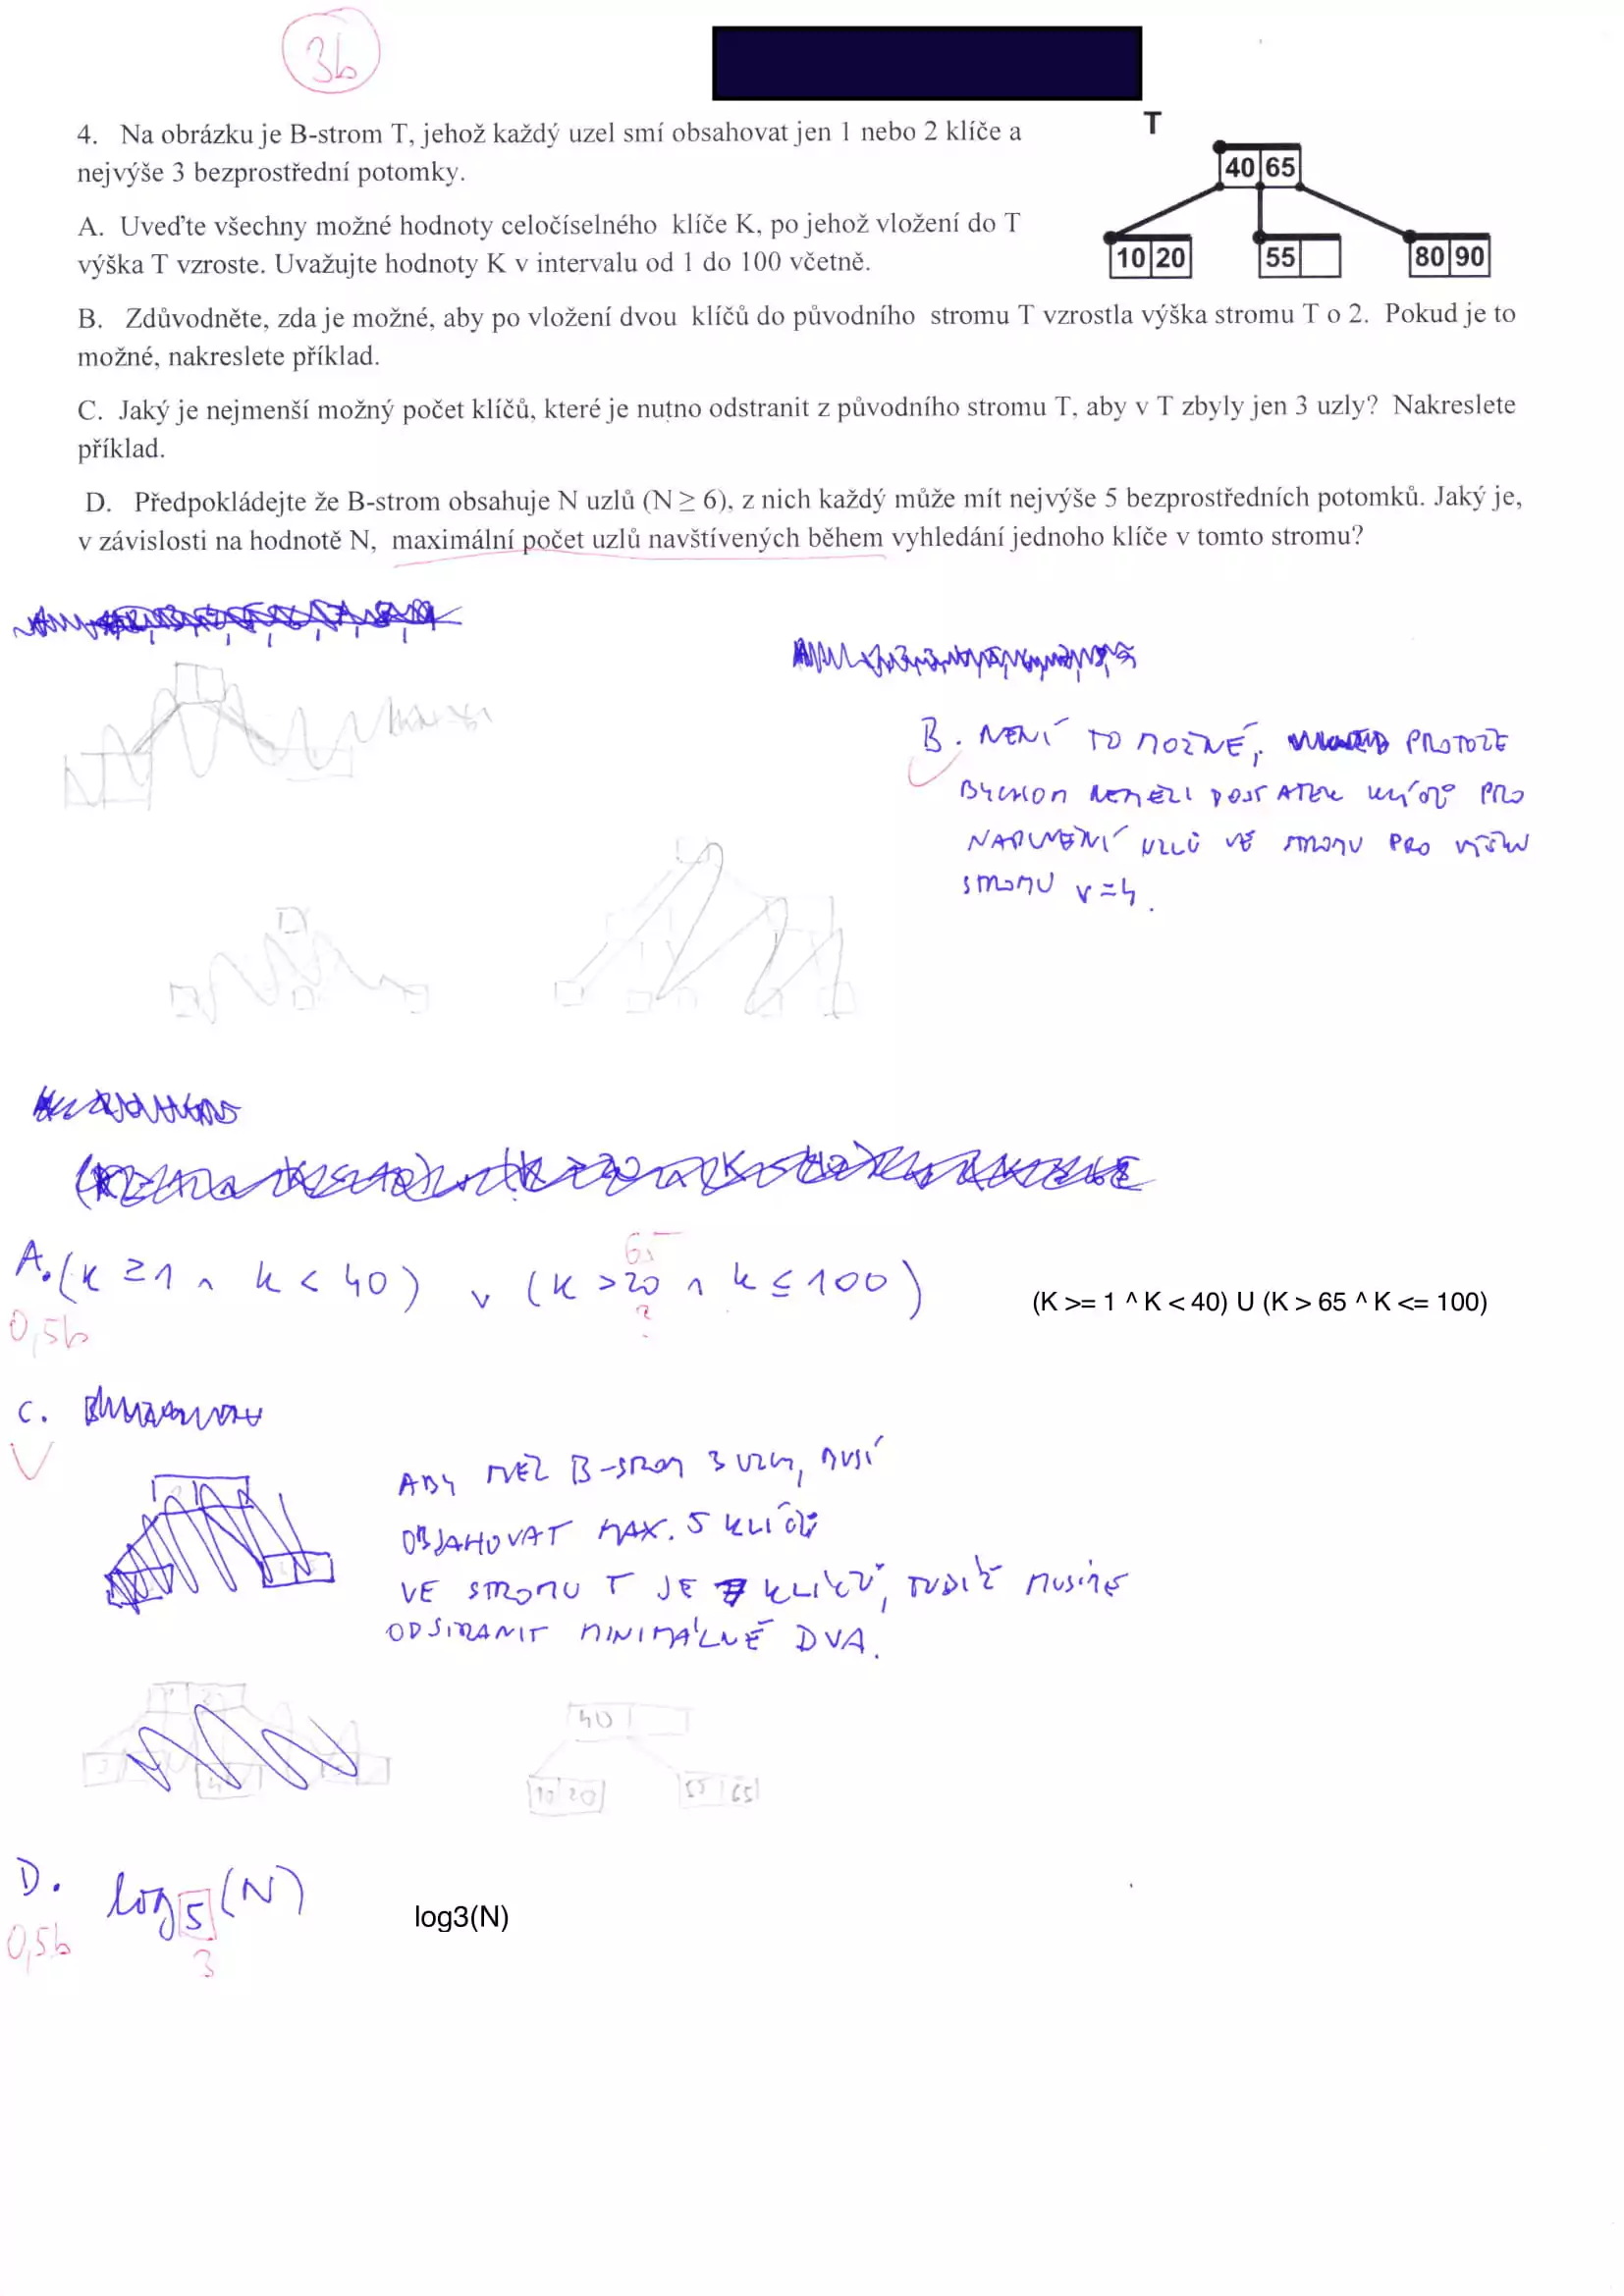 3b
T
4. Na obrázku je B-strom T, jehož každý uzel smí obsahovat jen 1 nebo 2 klíče a
nejvýše 3 bezprostřední potomky.
40 65
10 20
55
80 90
A. Uveďte všechny možné hodnoty celočíselného klíče K, po jehož vložení do T
výška T vzroste. Uvažujte hodnoty K v intervalu od 1 do 100 včetně.
B. Zdůvodněte, zda je možné, aby po vložení dvou klíčů do původního stromu T vzrostla výška stromu T o 2. Pokud je to
možné, nakreslete příklad.
C. Jaký je nejmenší možný počet klíčů, které je nutno odstranit z původního stromu T, aby v T zbyly jen 3 uzly? Nakreslete
příklad.
D. Předpokládejte že B-strom obsahuje N uzlů (N ≥ 6), z nich každý může mít nejvýše 5 bezprostředních potomků. Jaký je,
v závislosti na hodnotě N, maximální počet uzlů navštívených během vyhledání jednoho klíče v tomto stromu?
B. NENÍ TO MOŽNÉ, PROTOŽE
BYCHOM NEMĚLI DOSTATEK KLÍČŮ PRO
NAPLNĚNÍ UZLŮ VE STROMU PRO VÝŠKU
STROMU v = 4.
65
A. (K ≥ 1 ∧ K < 40) ∨ (K > 20 ∧ K ≤ 100)
?
0,5b
(K >= 1 ^ K < 40) U (K > 65 ^ K <= 100)
C.
ABY MĚL B-STROM 3 UZLY, MUSÍ
OBSAHOVAT MAX. 5 KLÍČŮ
VE STROMU T JE 7 KLÍČŮ, TUDÍŽ MUSÍME
ODSTRANIT MINIMÁLNĚ DVA.
40
10 20
55 65
D. log5(N)
3
0,5b
log3(N)